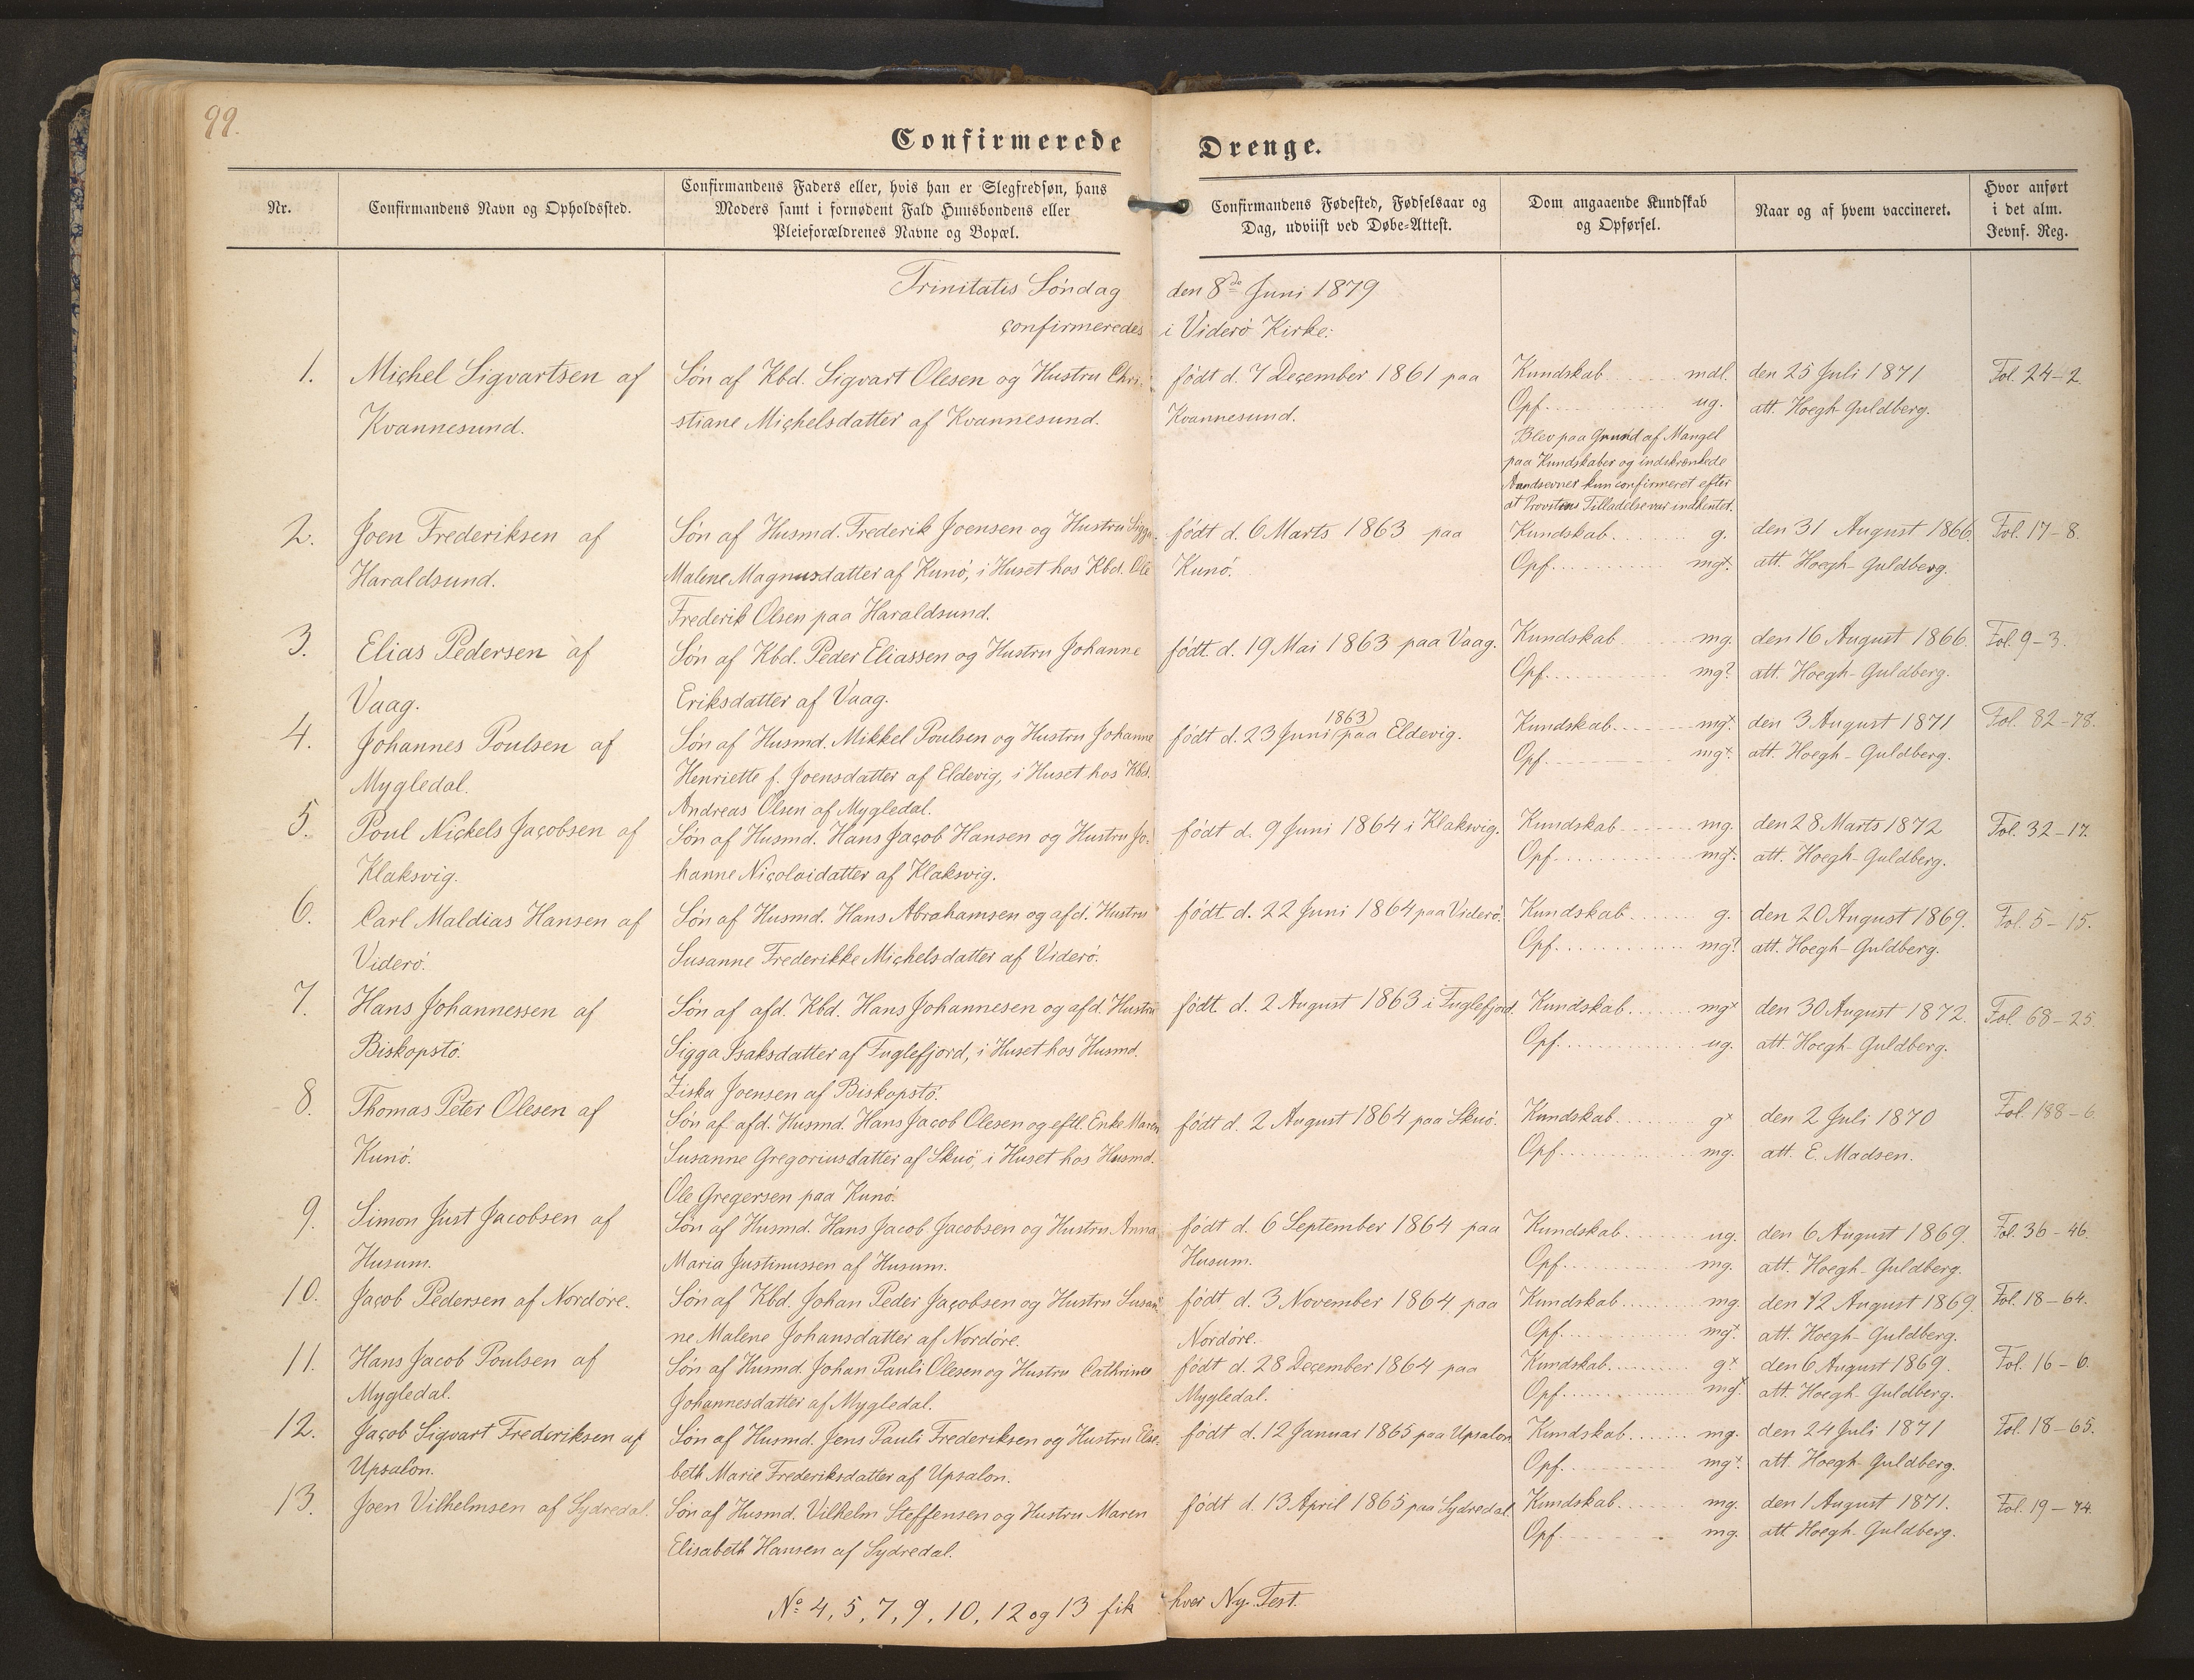 99.
Confirmerede Drenge.
Nr.
Confirmandens Navn og Opholdssted.
Confirmandens Faders eller, hvis han er Slegfredsøn, hans
Moders samt i fornødent Fald Huusbondens eller
Pleieforældrenes Navne og Bopæl.
Confirmandens Fødested, Fødselsaar og
Dag, udviist ved Døbe-Attest.
Dom angaaende Kundskab
og Opførsel.
Naar og af hvem vaccineret.
Hvor anført
i det alm.
Jevnf. Reg.
Trinitatis Søndag den 8de Juni 1879
confirmeredes i Viderø Kirke:
1.
Michel Sigvartsen af
Kvannesund.
Søn af Kbd. Sigvart Olesen og Hustru Chri-
stiane Michelsdatter af Kvannesund.
født d. 7 December 1861 paa
Kvannesund.
Kundskab mdl.
Opf. ug.
Blev paa Grund af Mangel
paa Kundskaber og indskrænkede
Aandsevner kun confirmeret efter
at Provstens Tilladelse var indhentet.
den 25 Juli 1871
att. Hoegh-Guldberg.
Fol. 24-2.
2.
Joen Frederiksen af
Haraldsund.
Søn af Husmd. Frederik Joensen og Hustru Sigga
Malene Magnusdatter af Kunø, i Huset hos Kbd. Ole
Frederik Olsen paa Haraldsund.
født d. 6 Marts 1863 paa
Kunø.
Kundskab. g.
Opf. mg+.
den 31 August 1866.
att. Hoegh-Guldberg.
Fol. 17-8.
3.
Elias Pedersen af
Vaag.
Søn af Kbd. Peder Eliassen og Hustru Johanne
Eriksdatter af Vaag.
født. d. 19 Mai 1863 paa Vaag.
Kundskab mg.
Opf. mg?
den 16 August 1866.
att. Hoegh-Guldberg.
Fol. 9-3.
4.
Johannes Poulsen af
Mygledal.
Søn af Husmd. Mikkel Poulsen og Hustru Johanne
Henriette f. Joensdatter af Eldevig, i Huset hos Kbd.
Andreas Olsen af Mygledal.
1863
født d. 23 Juni paa Eldevig.
Kundskab. mg+.
Opf. mg+.
den 3 August 1871
att. Hoegh-Guldberg.
Fol. 82-78.
5.
Poul Nickels Jacobsen af
Klaksvig.
Søn af Husmd. Hans Jacob Hansen og Hustru Jo-
hanne Nicolaidatter af Klaksvig.
født d. 9 Juni 1864 i Klakvig.
Kundskab mg.
Opf. mg+.
den 28 Marts 1872
att. Hoegh-Guldberg.
Fol. 32-17.
6.
Carl Maldias Hansen af
Viderø.
Søn af Husmd. Hans Abrahamsen og afd. Hustru
Susanne Frederikke Michelsdatter af Viderø.
født. d. 22 Juni 1864 paa Viderø.
Kundskab. g.
Opf. mg?
den 20 August 1869.
att. Hoegh-Guldberg.
Fol. 5-15.
7.
Hans Johannessen af
Biskopstø.
Søn af afd. Kbd. Hans Johannesen og afd. Hustru
Sigga Isaksdatter af Fuglefjord, i Huset hos Husmd.
Ziska Joensen af Biskopstø.
født. d. 2 August 1863 i Fuglefjord.
Kundskab. mg+
Opf. ug.
den 30 August 1872.
att. Hoegh-Guldberg.
Fol. 68-25.
8.
Thomas Peter Olesen af
Kunø.
Søn af afd. Husmd. Hans Jacob Olesen og eftl. Enke Maren
Susanne Gregoriusdatter af Skuø, i Huset hos Husmd.
Ole Gregersen paa Kunø.
født d. 2 August 1864 paa Skuø.
Kundskab. g+
Opf. mg.
den 2 Juli 1870
att. E. Madsen.
Fol. 188-6
9.
Simon Just Jacobsen af
Husum.
Søn af Husmd. Hans Jacob Jacobsen og Hustru Anna
Maria Justinussen af Husum.
født d. 6 September 1864 paa
Husum.
Kundskab. ug.
Opf. mg.
den 6 August 1869.
att. Hoegh-Guldberg.
Fol. 36-46.
10.
Jacob Pedersen af Nordøre.
Søn af Kbd. Johan Peder Jacobsen og Hustru Susan-
ne Malene Johansdatter af Nordøre.
født. d. 3 November 1864 paa
Nordøre.
Kundskab. mg.
Opf. mg+.
den 12 August 1869.
att. Hoegh-Guldberg.
Fol. 18-64.
11.
Hans Jacob Poulsen af
Mygledal.
Søn af Husmd. Johan Pauli Olesen og Hustru Cathrine
Johannesdatter af Mygledal.
født d. 28 December 1864 paa
Mygledal.
Kundskab. g+.
Opf. mg+.
den 6 August 1869.
att. Hoegh-Guldberg.
Fol. 16-6.
12.
Jacob Sigvart Frederiksen af
Upsalon.
Søn af Husmd. Jens Pauli Frederiksen og Hustru Else-
beth Marie Frederiksdatter af Upsalon.
født d. 12 Januar 1865 paa Upsalon
Kundskab. mg.
Opf. mg+.
den 24 Juli 1871
att. Hoegh-Guldberg.
Fol. 18-65.
13.
Joen Vilhelmsen af Sydredal.
Søn af Husmd. Vilhelm Steffensen og Hustru Maren
Elisabeth Hansen af Sydredal.
født d. 13 April 1865 paa Sydredal.
Kundskab. mg.
Opf. mg.
den 1 August 1871.
att. Hoegh-Guldberg.
Fol. 19-74.
No. 4, 5, 7, 9, 10, 12 og 13 fik hver Ny. Test.